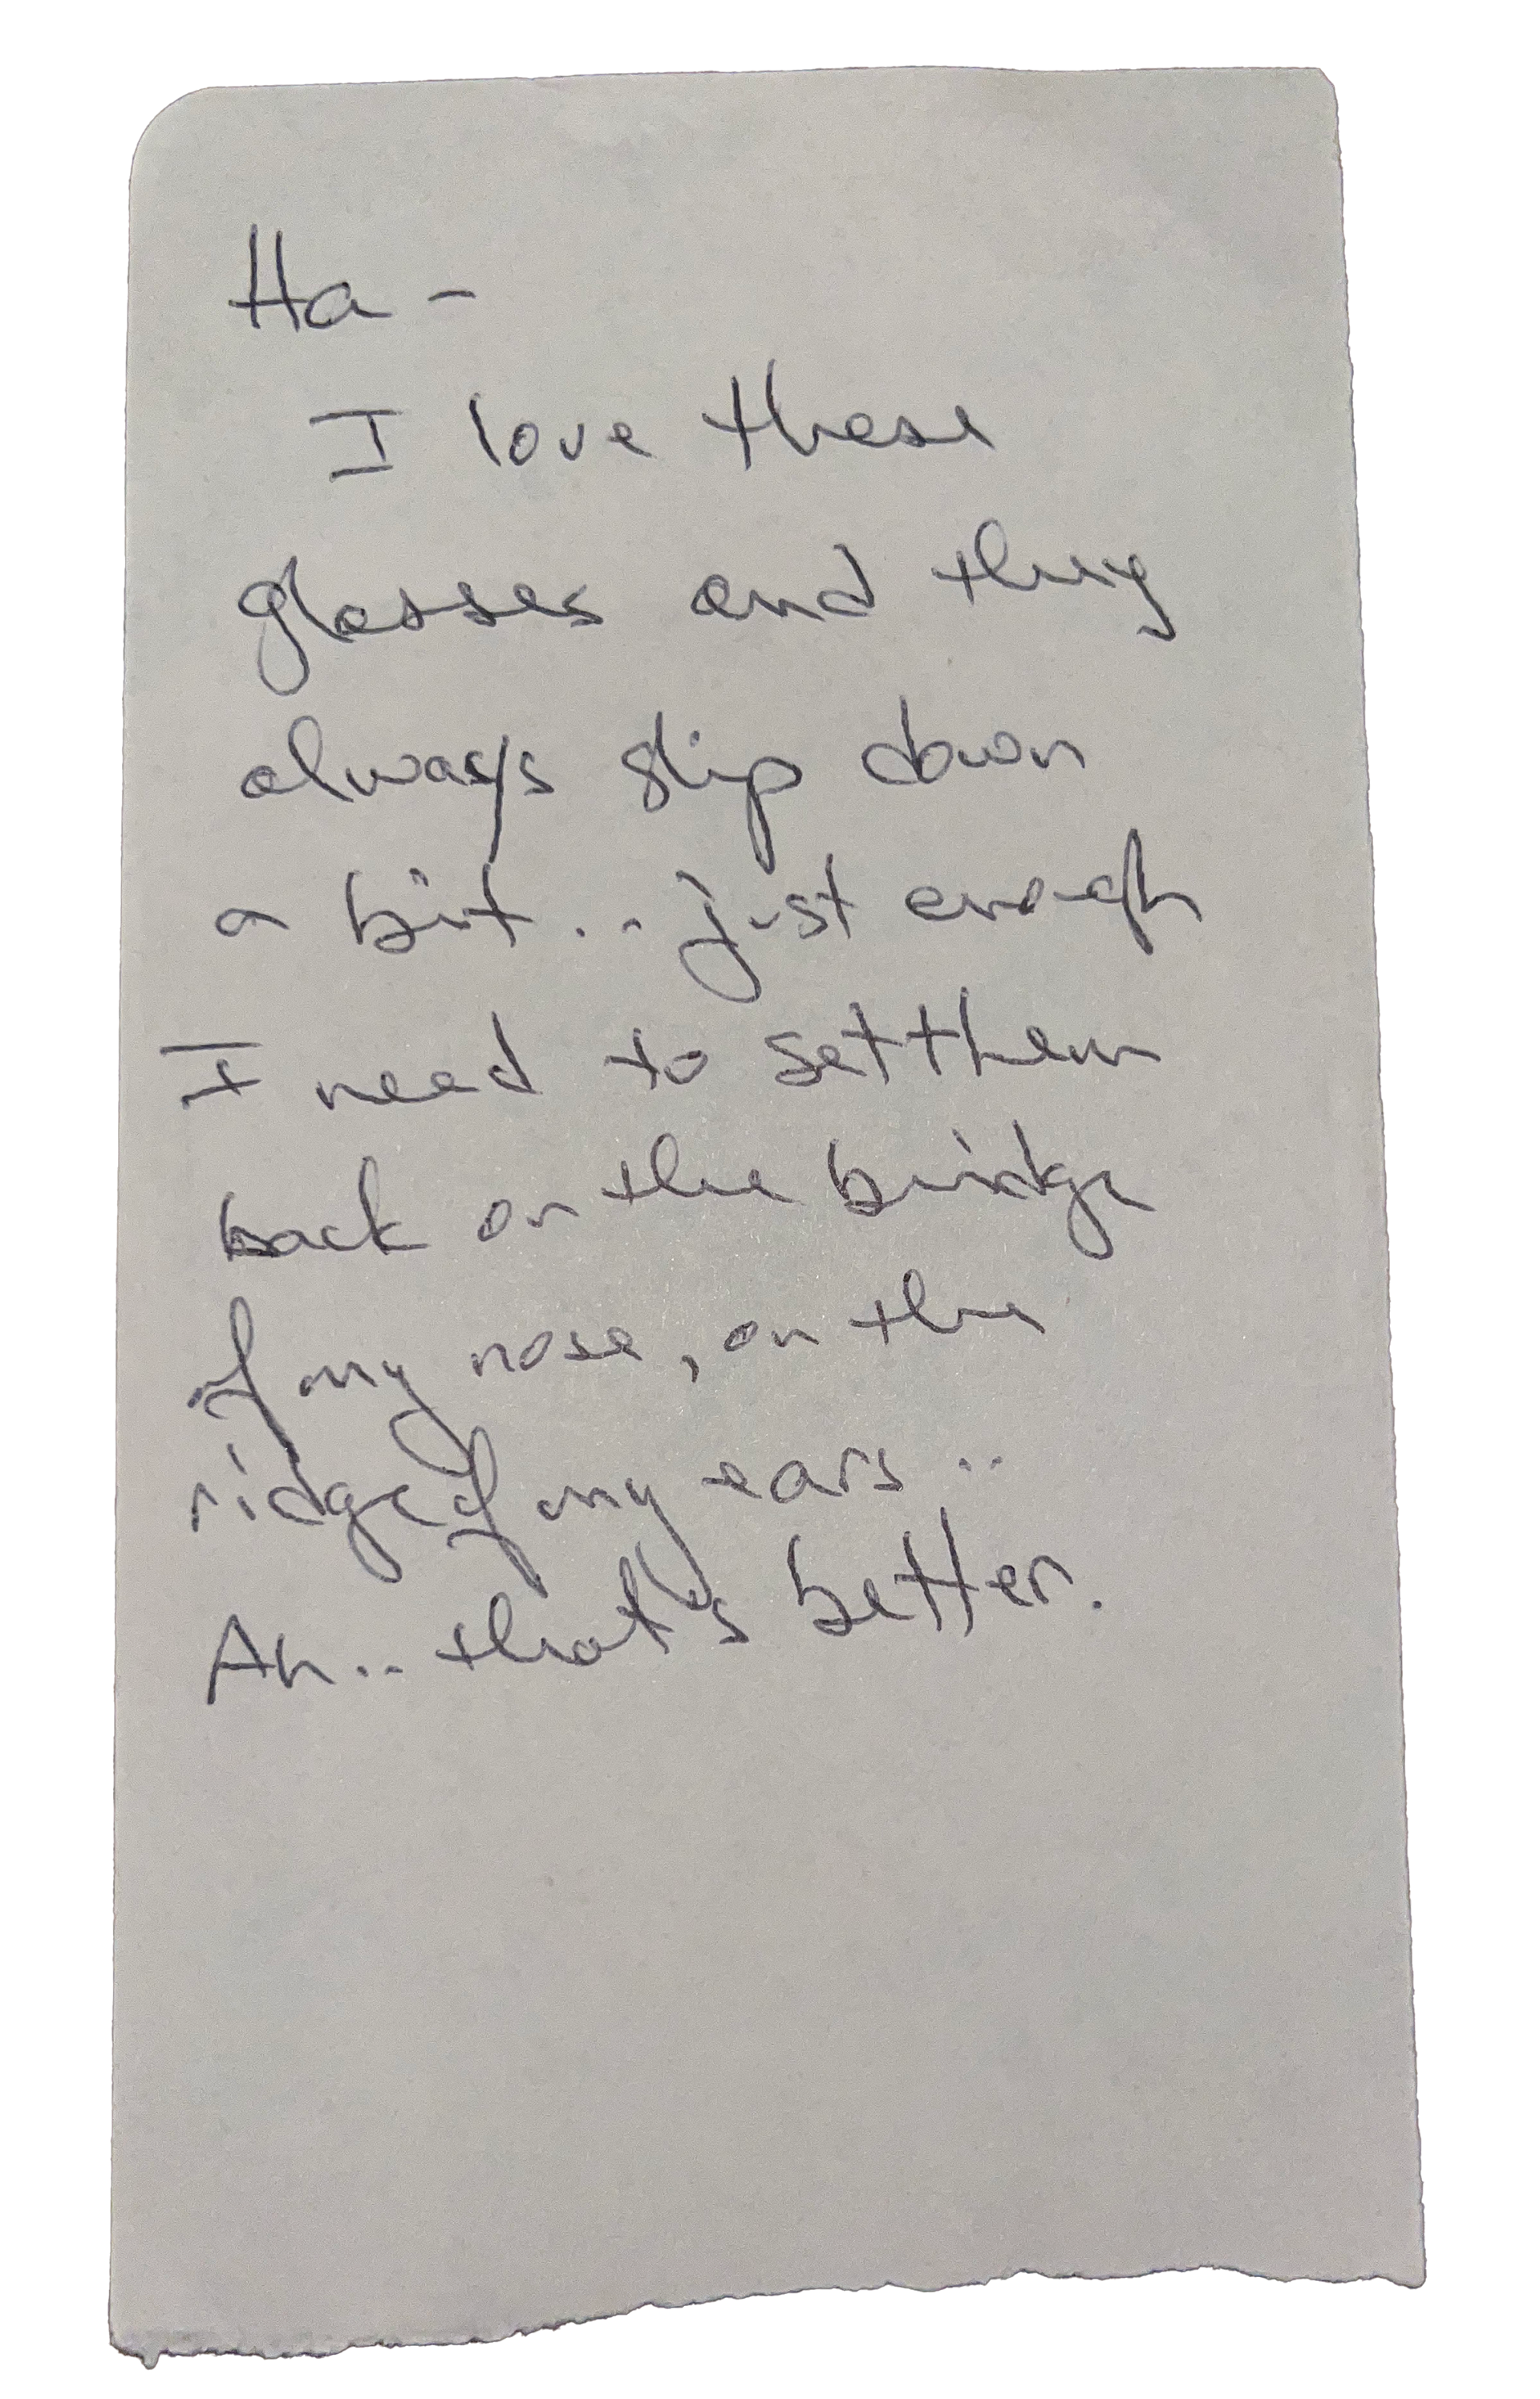 Ha -
I love these
glasses and they
always slip down
a bit... just enough
I need to set them
back on the bridge
of my nose, on the
ridge of my ears..
Ah.. that's better.